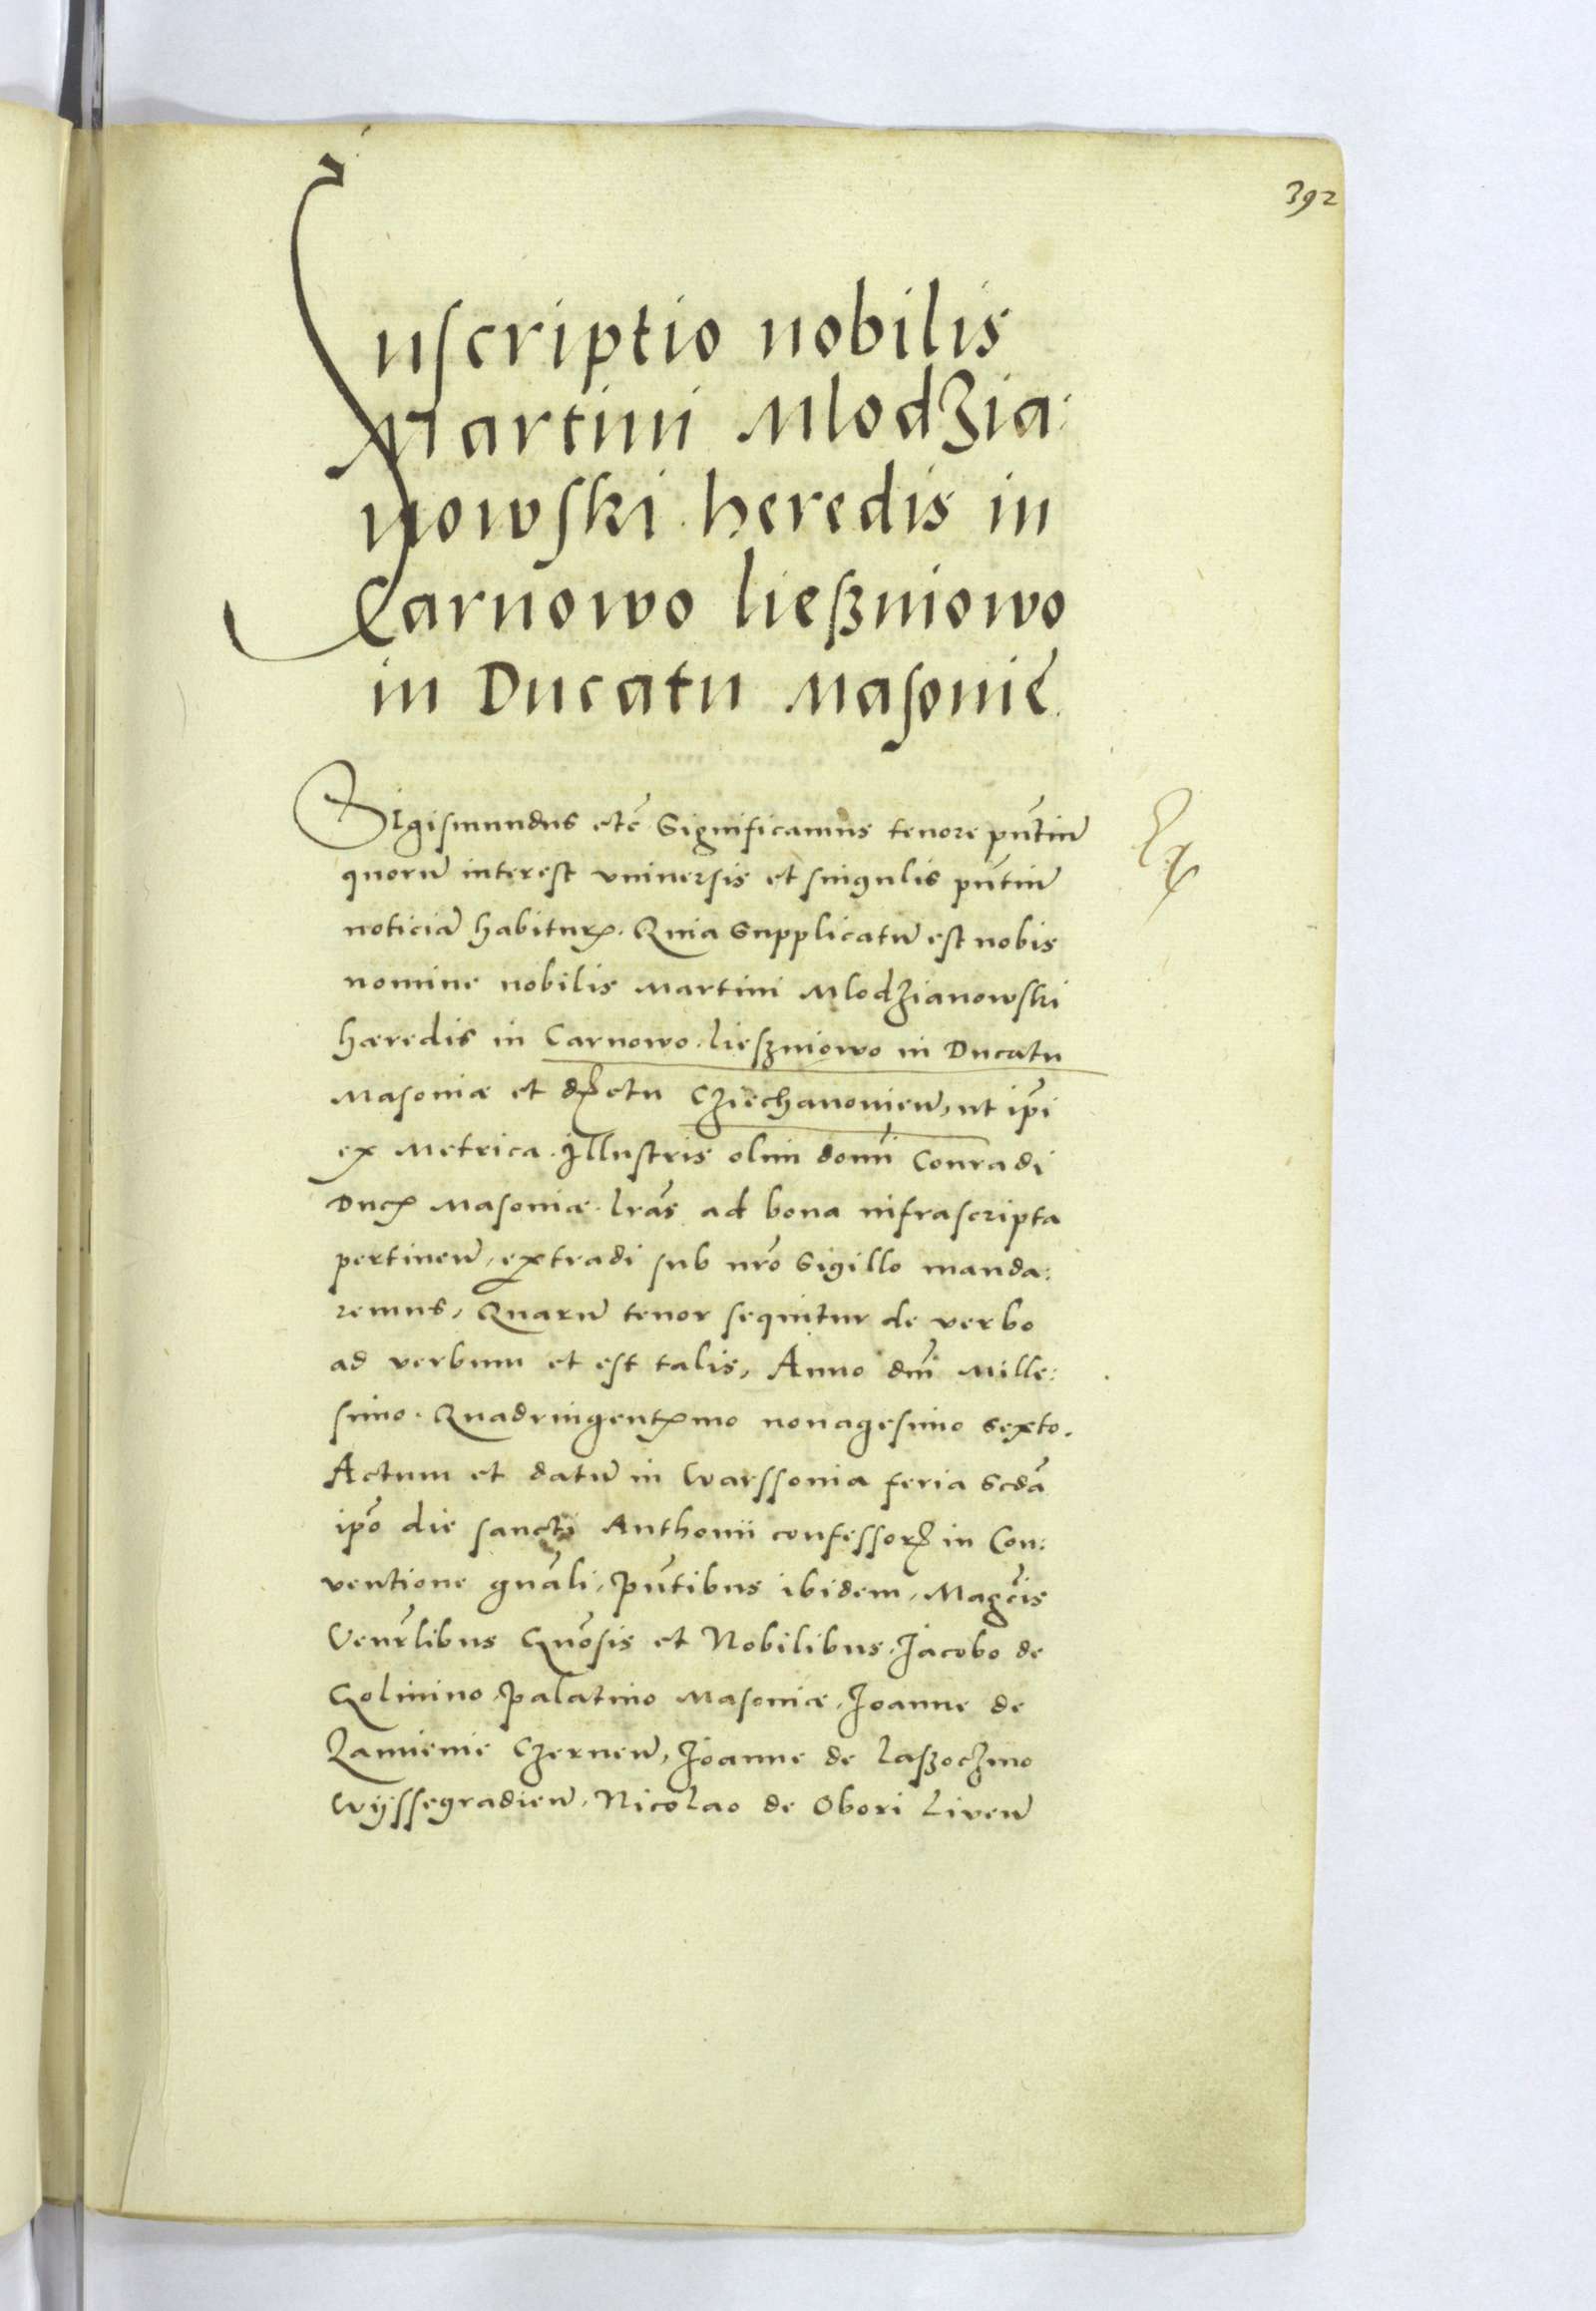 392
Inscriptio nobilis
Martini Mlodzia:
nowski heredis in
Carnowo lieszniowo
in Ducatu Masonie
Sigismundus etc̄ Significamus tenore pn̄tiū
quorū interest vniuersis et singulis pn̄tiū
noticiā habiturꝝ. Quia Supplicatū est nobis
nomine nobilis Martini Mlodzianowski
hæredis in Carnowo lieszniowo in Ducatu
Masoniæ et dꝶctu Cziechanonieñ, ut ip̄i
ex Metrica Illustris olim domī Conradi
Ducꝭ Masoniæ lrās ad bona infrascripta
pertineñ, extradi sub nrō Sigillo manda:
remus, Quarū tenor sequitur de verbo
ad verbum et est talis, Anno dnī Mille:
simo Quadringentꝭmo nonagesimo sexto.
Actum et datū in Warssonia feria Scdā
ipō die sancti Anthonii confessorꝭ in Con:
ventione gnāli, Pn̄tibus ibidem, Magcīs
Venrl̄ibus Gnōsis et Nobilibus, Jacobo de
Golinino Palatino Masoniæ, Joanne de
Zamienie Czerneñ, Joanne de Laszoczino
Wÿssegradieñ, Nicolao de Obori Liveñ